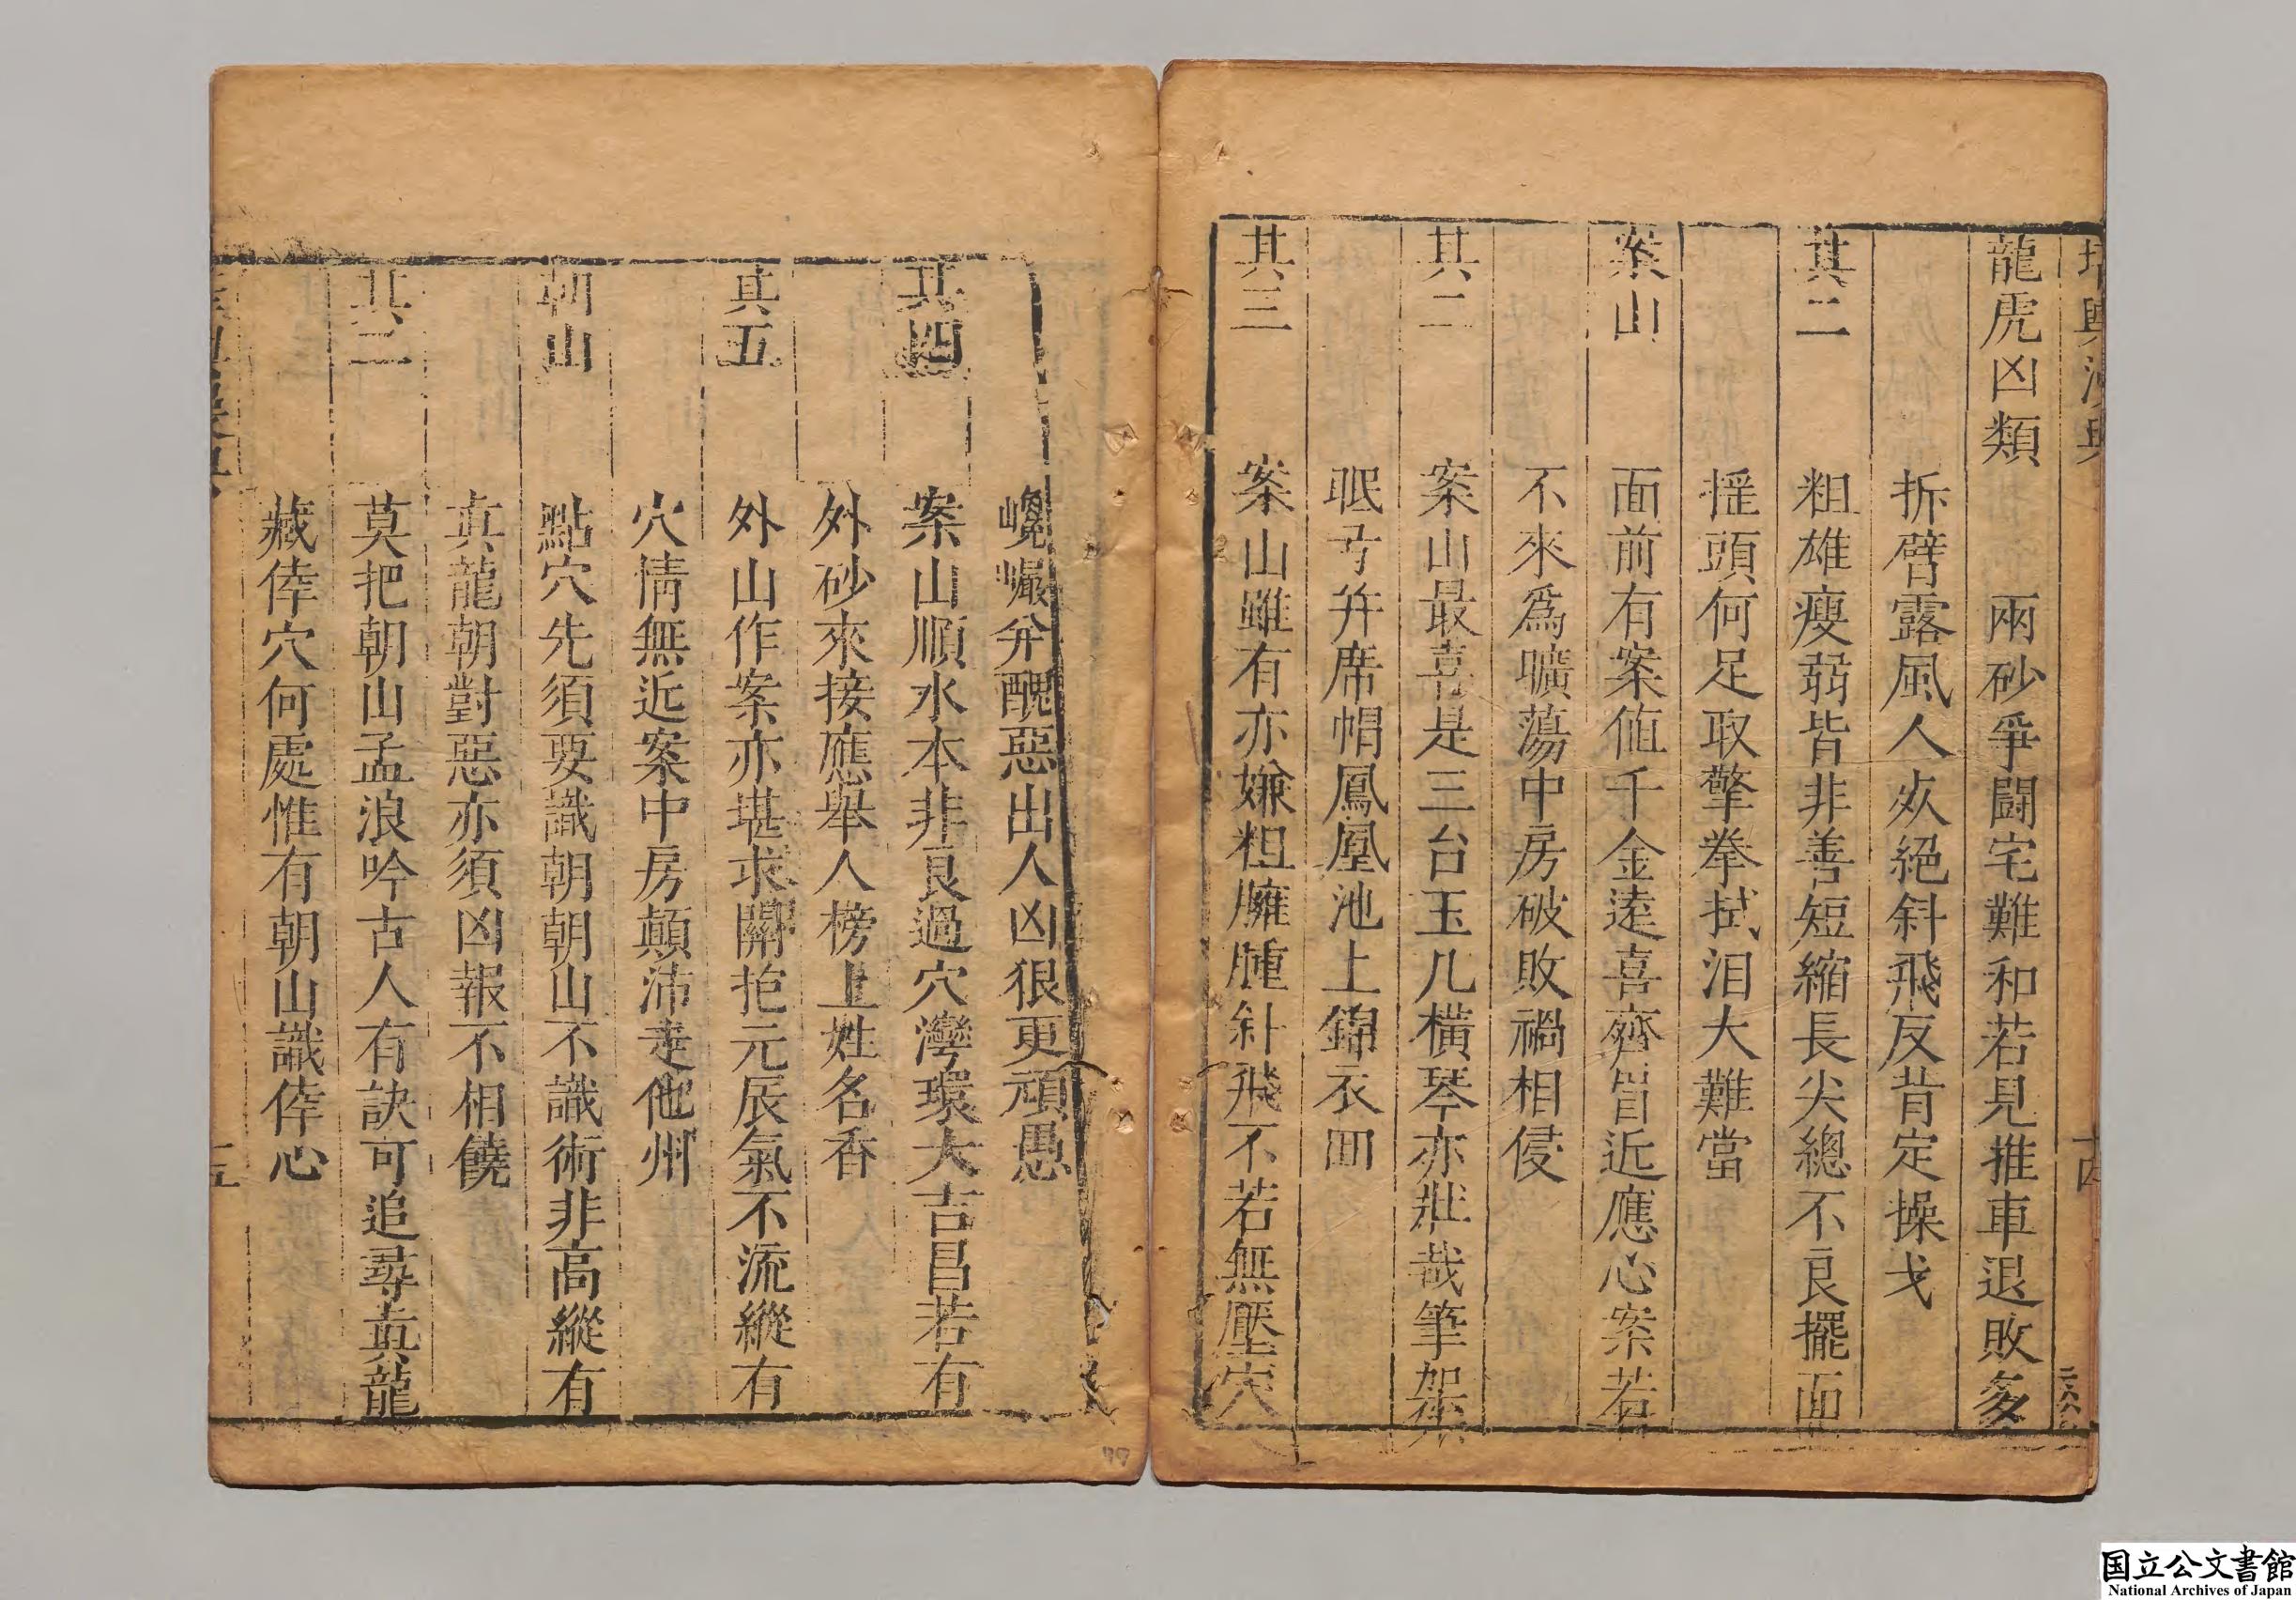 龍虎凶類　兩砂爭鬪宅難和若見推車退敗多
拆臂露風人必絕斜飛反背定操戈
其二　粗雄瘦弱皆非善短縮長尖總不良擺面
搖頭何足取擎拳拭泪大難當
案山　面前有案値千金逺喜齊眉近應心案若
不來爲曠蕩中房破敗禍相侵
其二　案山最喜是三台玉几橫琴亦壯哉筆架
眠弓并席帽鳳凰池上錦衣囬
其三　案山雖有亦嫌粗臃腫斜飛不若無壓穴
巉巖并醜惡出人凶狠更頑愚
其四　案山順水本非良過穴灣環大吉昌若有
外砂來接應舉人榜上姓名香
其五　外山作案亦堪求關抱元辰氣不流縱有
穴情無近案中房顛沛走他州
朝山　點穴先須要識朝朝山不識術非高縱有
眞龍朝對惡亦須凶報不相饒
其二　莫把朝山孟浪吟古人有訣可追尋眞龍
藏倖穴何處惟有朝山識倖心
十五
77
国立公文書館
National Archives of Japan